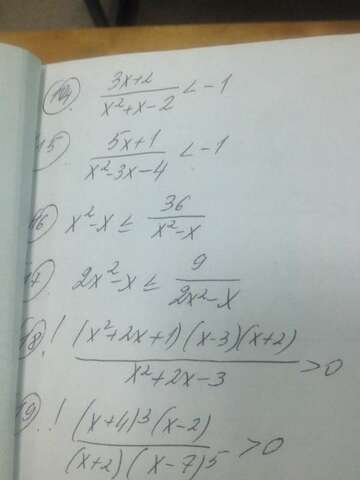 14. (3x+2)/(x²+x-2) < -1
15 (5x+1)/(x²-3x-4) < -1
16 x²-x ≤ 36/(x²-x)
17. 2x²-x ≤ 9/(2x²-x)
18. ! ((x²+2x+1)(x-3)(x+2))/(x²+2x-3) > 0
19. ! ((x+4)³(x-2))/((x+2)(x-7)⁵) > 0